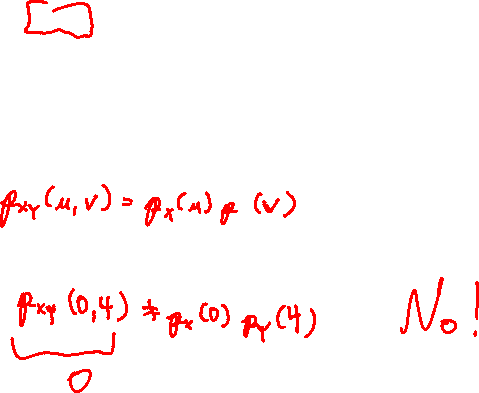 p_XY(u,v) = p_X(u) p (v)
p_XY(0,4) ≠ p_X(0) p_Y(4) No!
0